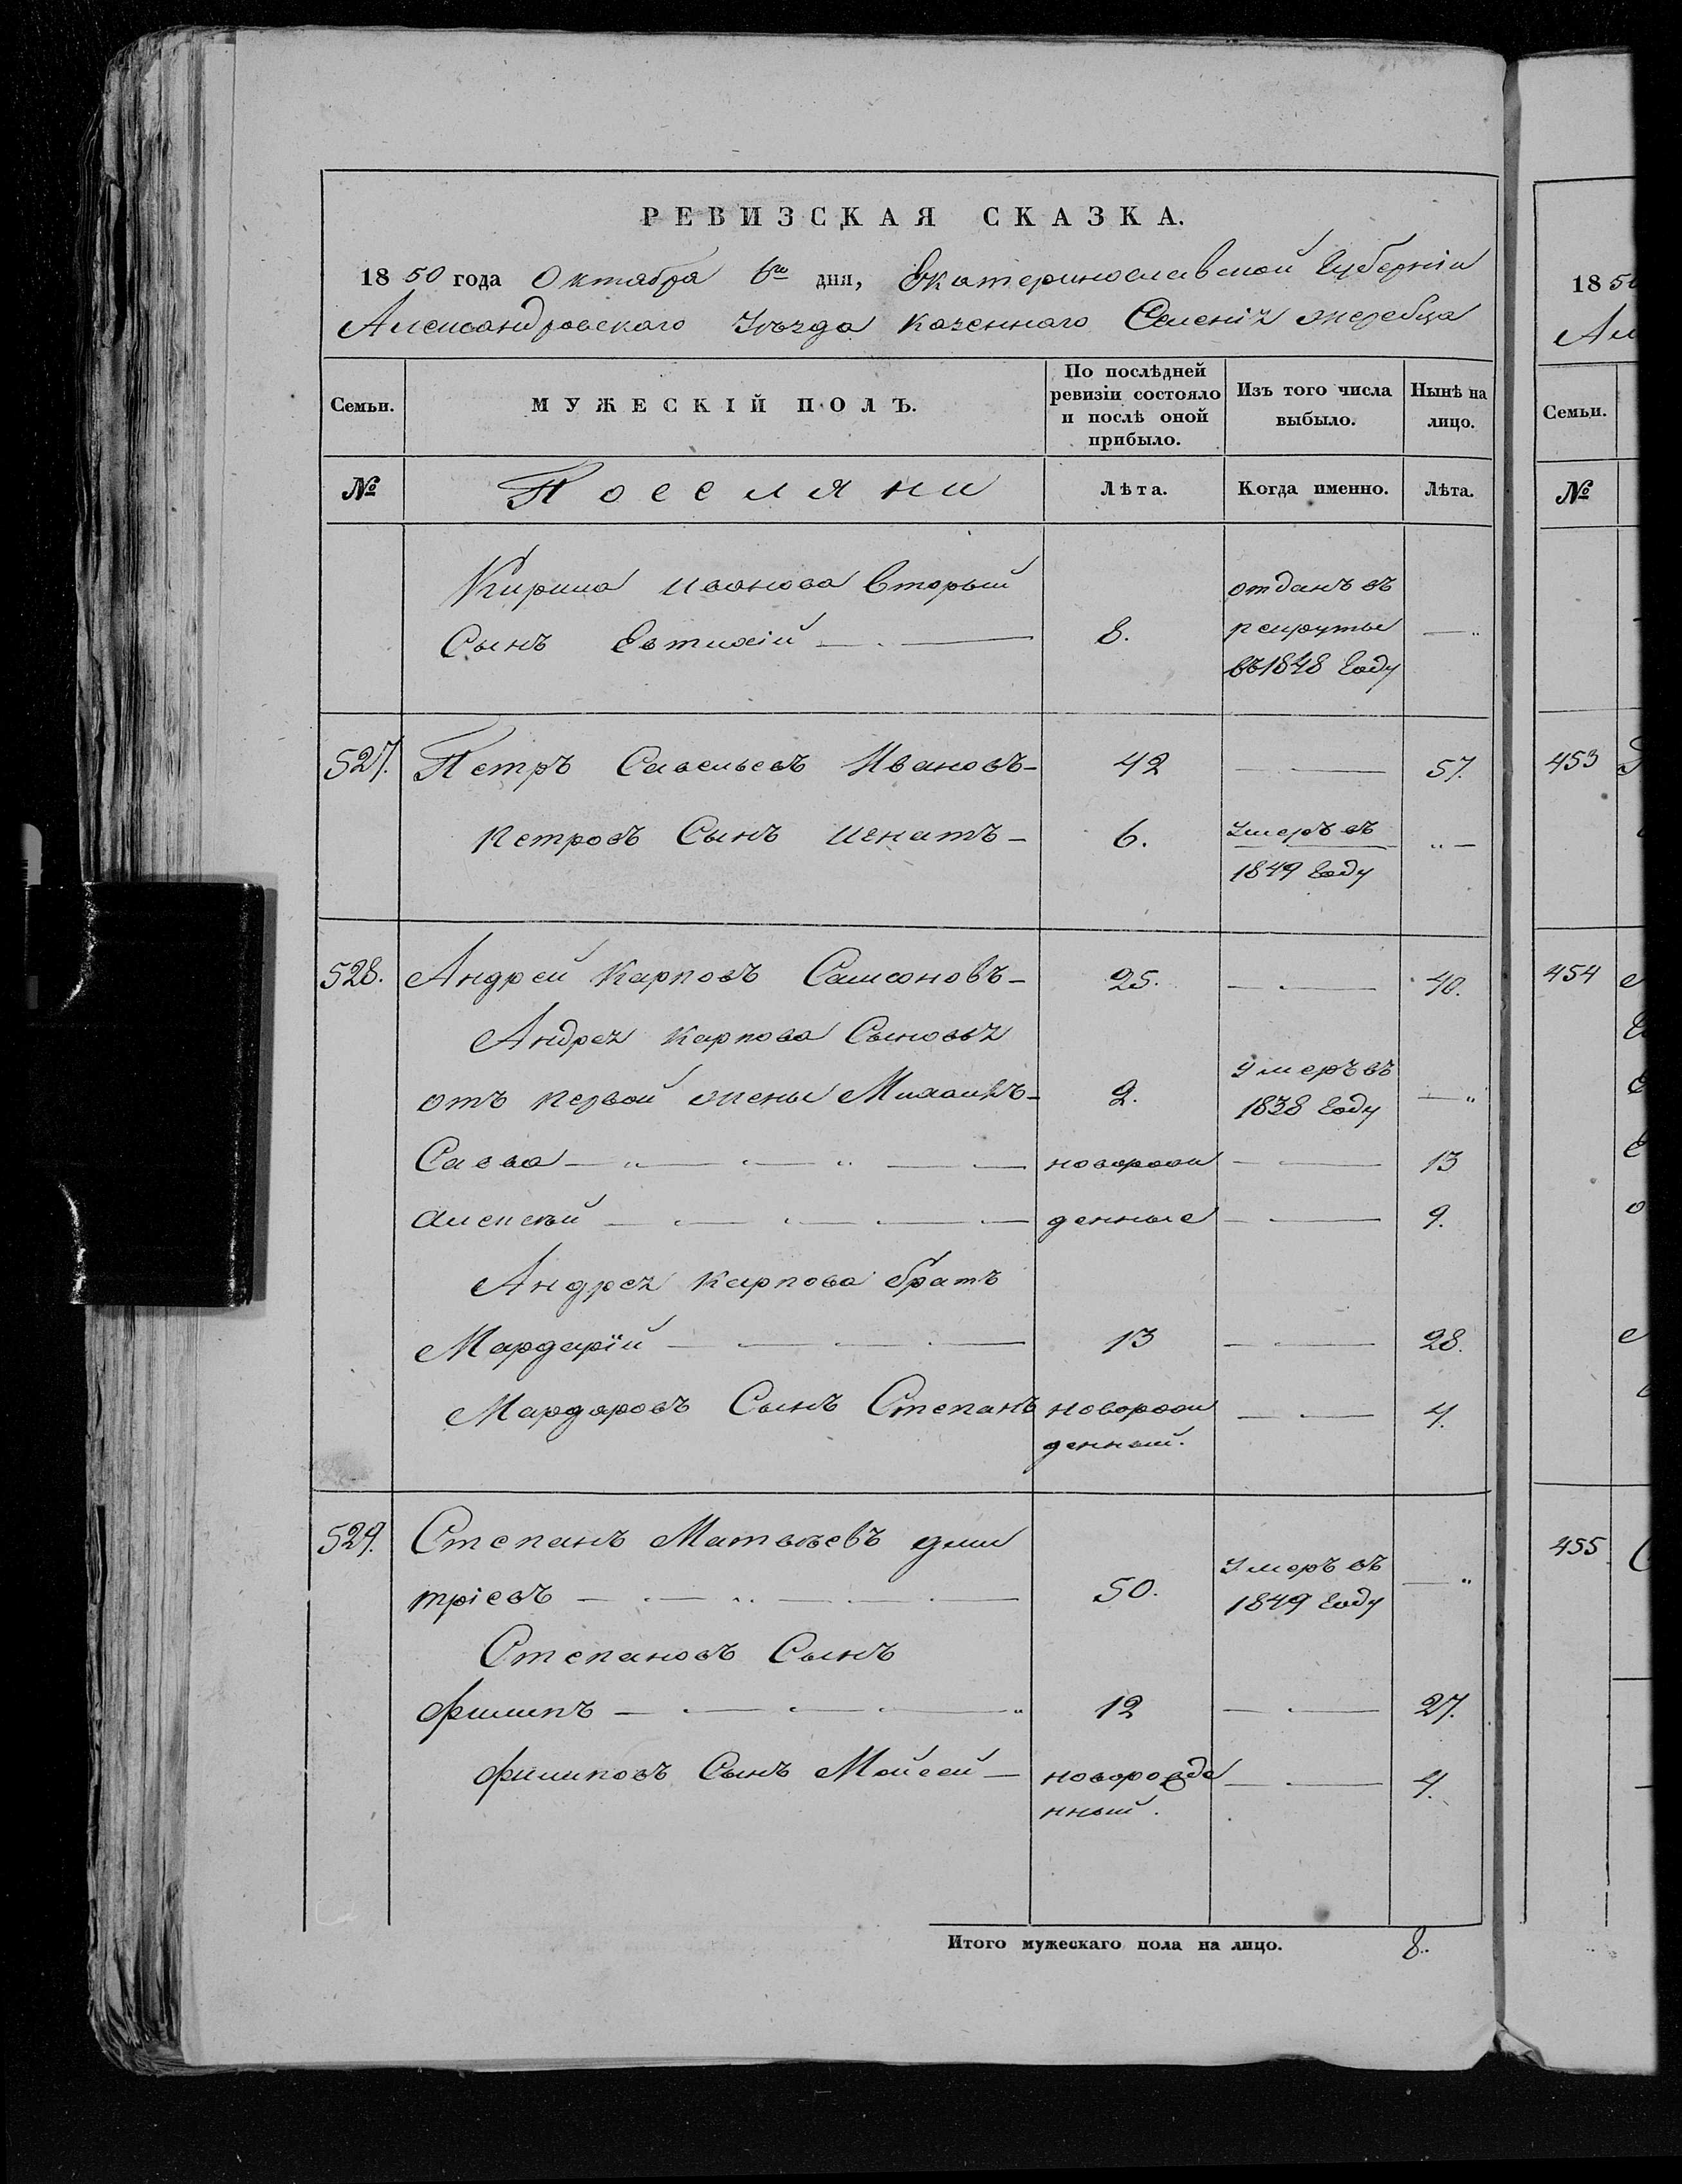 РЕВИЗСКАЯ СКАЗКА.
1850 года Октября 6го дня, Екатеринославской Губерніи
Александровского Уѣзда Казеннаго Селенія Жеребца
1850
Ал
Семьи. МУЖЕСКІЙ ПОЛЪ. По послѣдней ревизіи состояло и послѣ оной прибыло. Изъ того числа выбыло. Нынѣ на лицо.
Семьи.
№ Поселяни Лѣта. Когда именно. Лѣта.
№
Кирила Иванова Вторый отданъ въ
Сынъ Евтихій 8. рекруты
въ 1848 Году
527. Петръ Савельевъ Ивановъ 42 57.
453
Петровъ Сынъ Игнатъ 6. Умеръ въ
1849 Году
528. Андрей Карповъ Самсоновъ 25. 40.
454
Андрея Карпова Сыновья
отъ первой жены Михаилъ 2. Умеръ въ
1838 Году
Савва новорож 13
Алексѣй денные 9.
Андрея Карпова братъ
Мардарій 13 28.
Мардаровъ Сынъ Степанъ новорож 4.
денный.
529. Степанъ Матвѣевъ Дми Умеръ въ
455
тріевъ 50. 1849 Году
Степановъ Сынъ
Филипъ 12 27.
Филиповъ Сынъ Мойсей новорожде 4.
нный.
Итого мужескаго пола на лицо. 8.